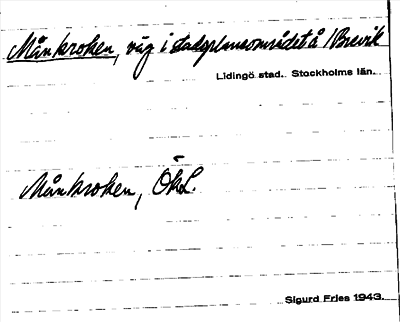 Månkroken, väg i stadsplaneområdet å Brevik
Lidingö stad. Stockholms län.
Månkroken, ÖkL.
Sigurd Fries 1943.